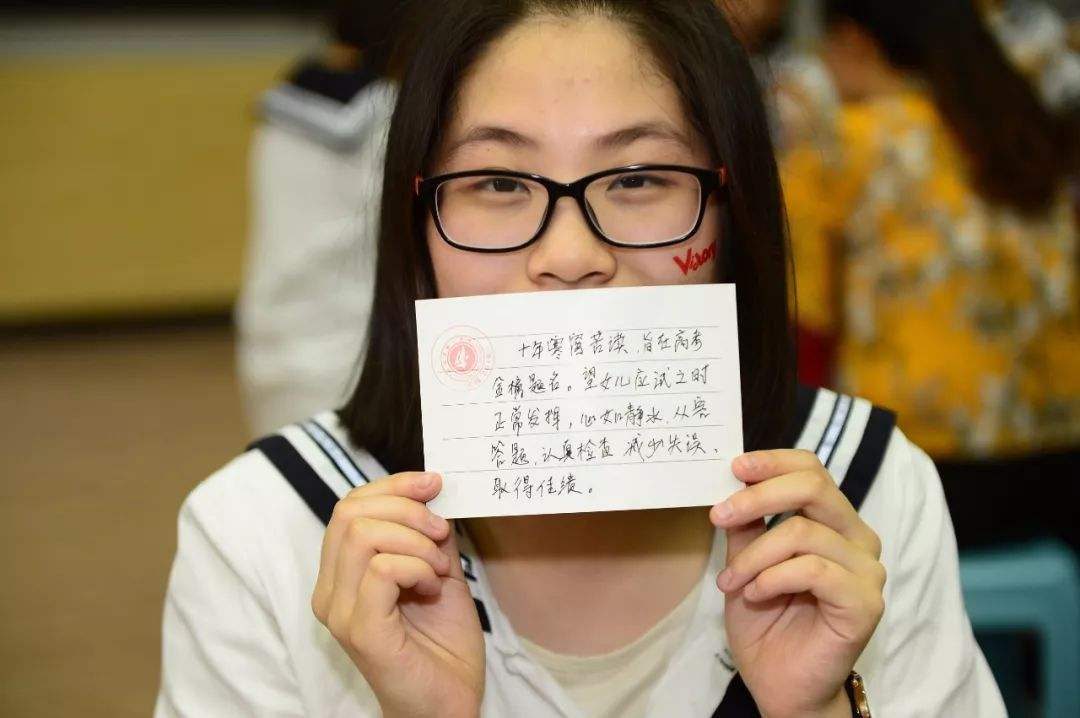 Victory
十年寒窗苦读，旨在高考
金榜题名。望女儿应试之时
正常发挥，心如静水，从容
答题，认真检查，减少失误，
取得佳绩。